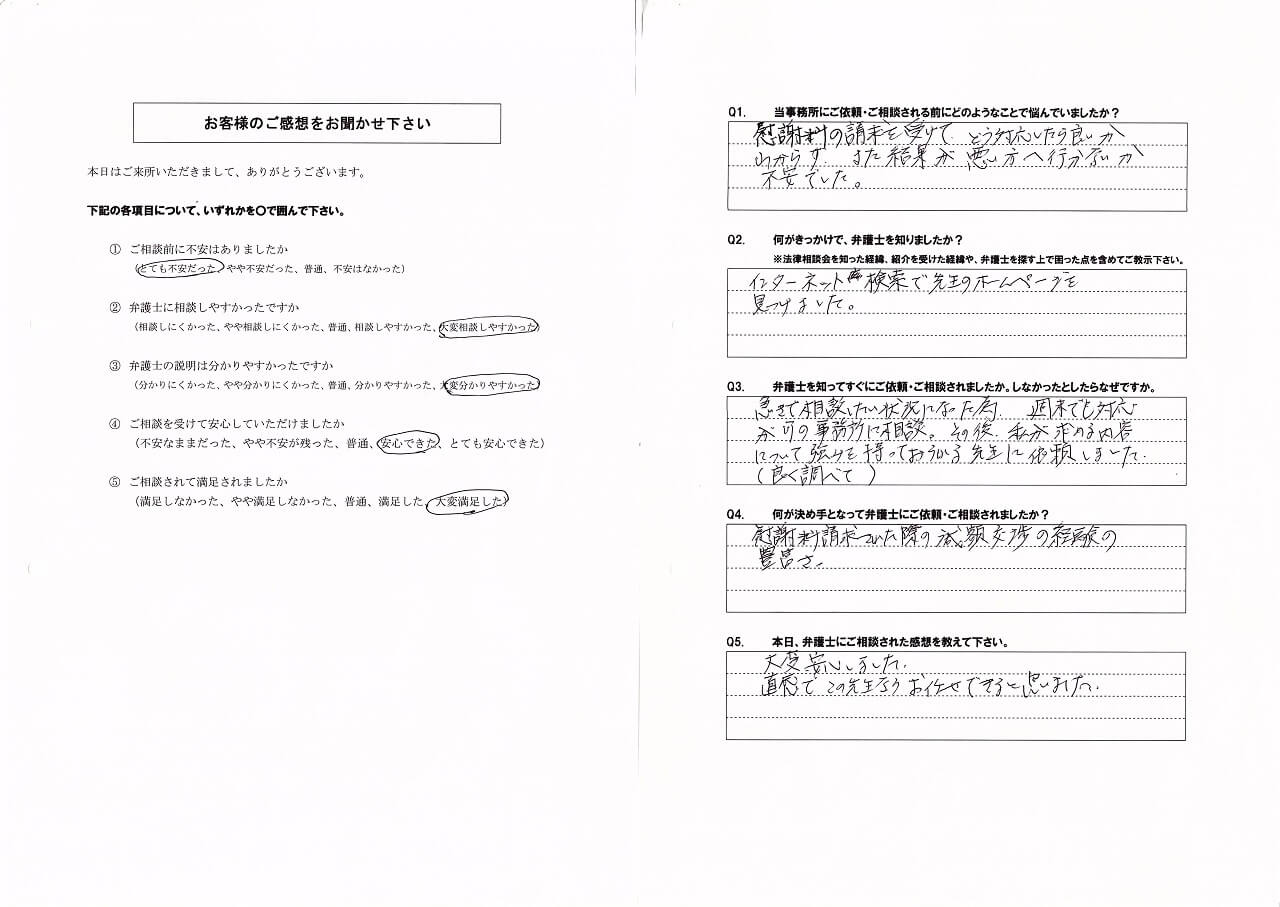 お客様のご感想をお聞かせ下さい
本日はご来所いただきまして、ありがとうございます。
下記の各項目について、いずれかを〇で囲んで下さい。
① ご相談前に不安はありましたか
（とても不安だった、やや不安だった、普通、不安はなかった）
② 弁護士に相談しやすかったですか
（相談しにくかった、やや相談しにくかった、普通、相談しやすかった、大変相談しやすかった）
③ 弁護士の説明は分かりやすかったですか
（分かりにくかった、やや分かりにくかった、普通、分かりやすかった、大変分かりやすかった）
④ ご相談を受けて安心していただけましたか
（不安なままだった、やや不安が残った、普通、安心できた、とても安心できた）
⑤ ご相談されて満足されましたか
（満足しなかった、やや満足しなかった、普通、満足した、大変満足した）
Q1. 当事務所にご依頼・ご相談される前にどのようなことで悩んでいましたか？
慰謝料の請求を受けて、どう対応したら良いか
わからず、また結果が悪い方へ行かないか
不安でした。
Q2. 何がきっかけで、弁護士を知りましたか？
※法律相談会を知った経緯、紹介を受けた経緯や、弁護士を探す上で困った点を含めてご教示下さい。
インターネット検索で先生のホームページを
見つけました。
Q3. 弁護士を知ってすぐにご依頼・ご相談されましたか。しなかったとしたらなぜですか。
急ぎで相談したい状況になった為、週末でも対応
が可の事務所に相談。その後、私が求める内容
について強みを持っておられる先生に依頼しました。
（良く調べて）
Q4. 何が決め手となって弁護士にご依頼・ご相談されましたか？
慰謝料請求された際の減額交渉の経験の
豊富さ。
Q5. 本日、弁護士にご相談された感想を教えて下さい。
大変安心しました。
直感でこの先生ならお任せできると思いました。